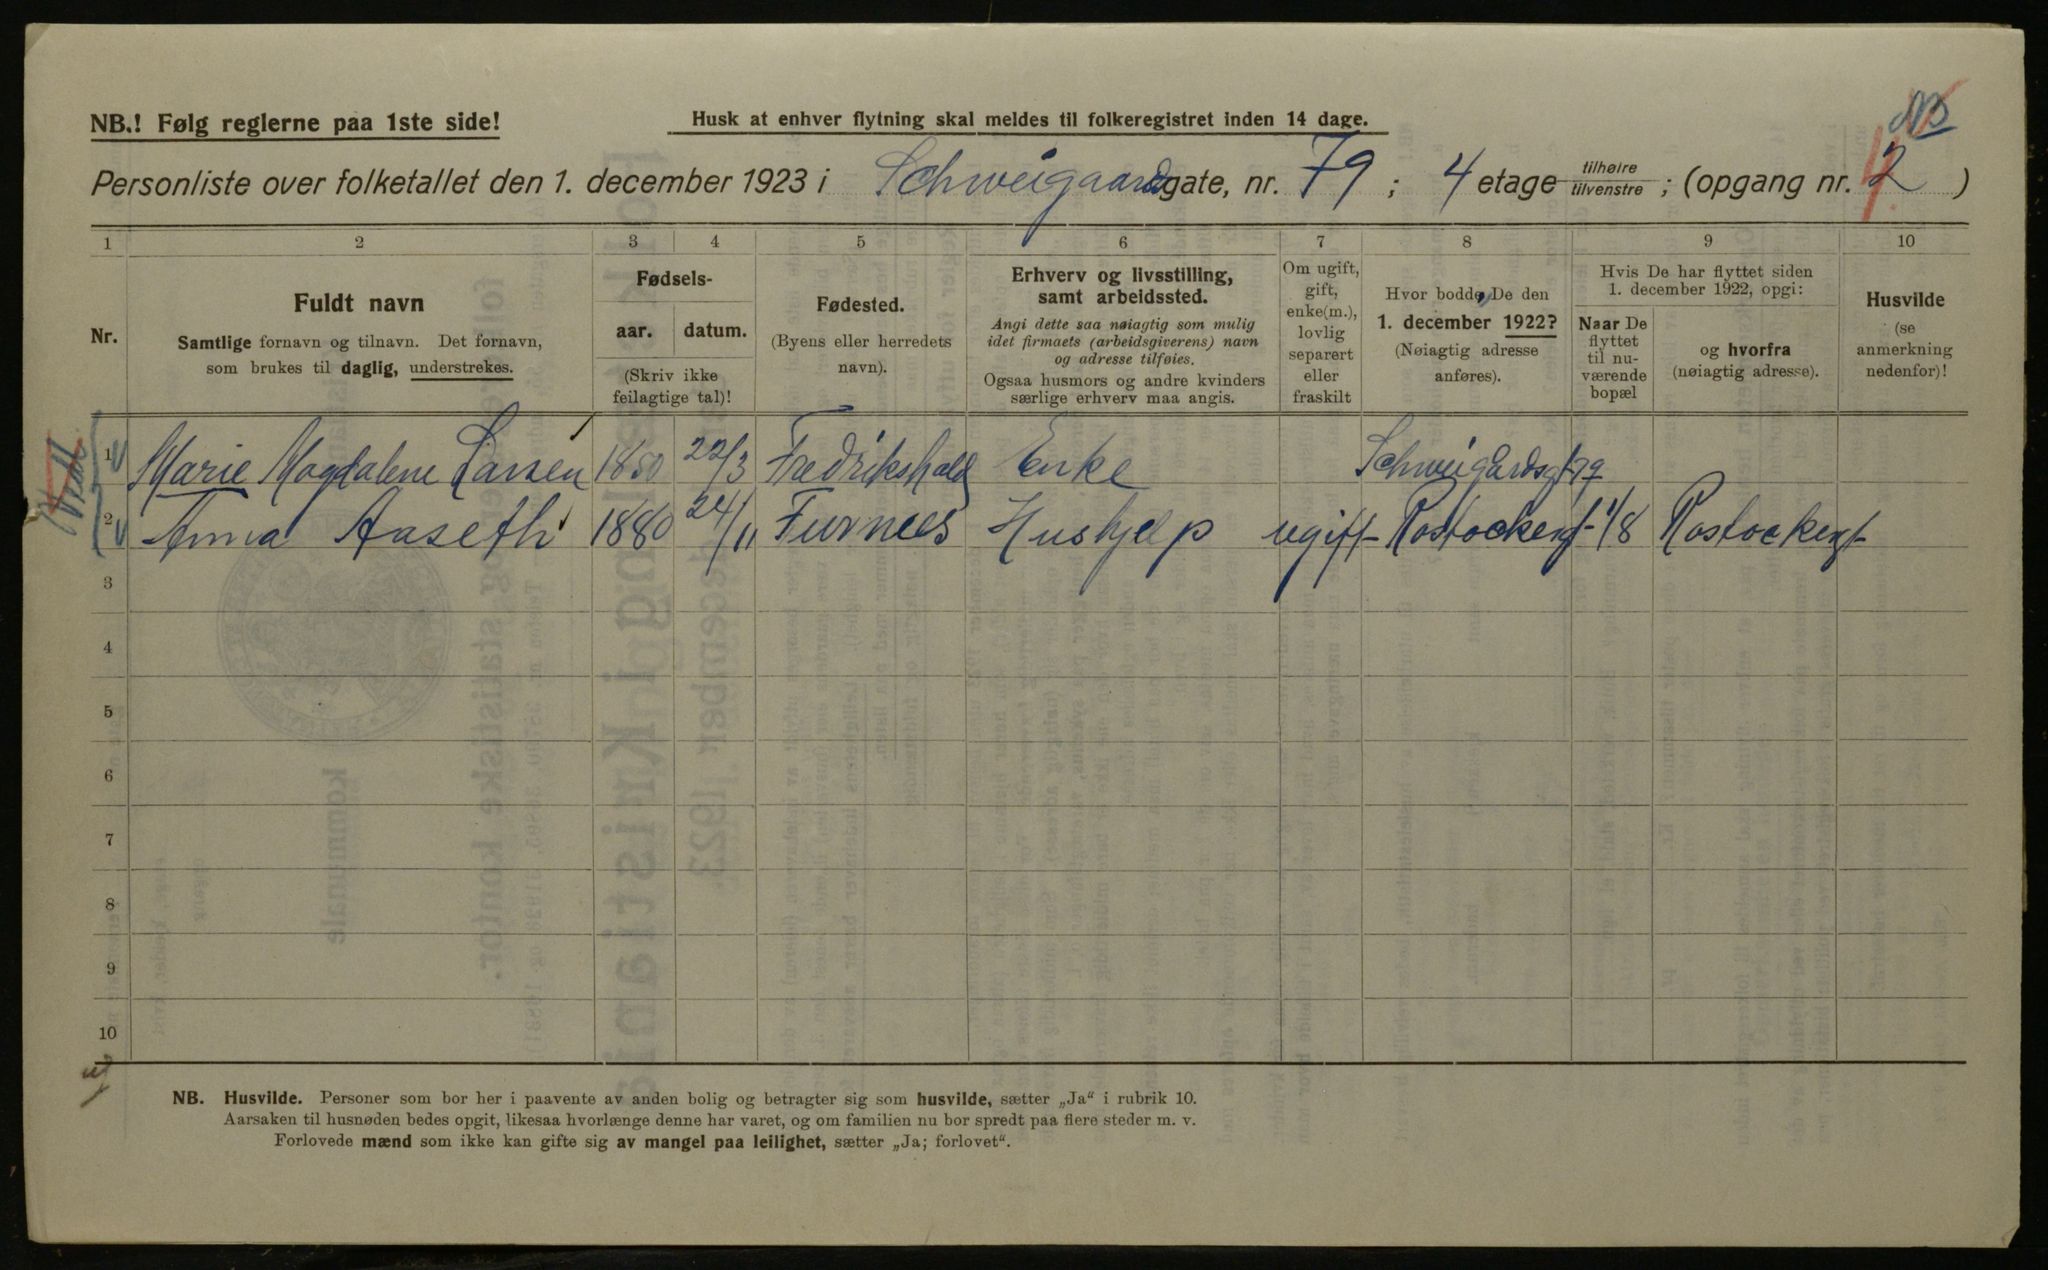 NB.! Følg reglerne paa 1ste side!
Husk at enhver flytning skal meldes til folkeregistret inden 14 dage.
Personliste over folketallet den 1. december 1923 i Schweigaardsgate, nr. 79; 4 etage tilhøire tilvenstre; (opgang nr. 2)
1 2 3 4 5 6 7 8 9 10
Nr.
Fuldt navn
Samtlige fornavn og tilnavn. Det fornavn,
som brukes til daglig, understrekes.
Fødsels-
aar. datum.
(Skriv ikke
feilagtige tal)!
Fødested.
(Byens eller herredets
navn).
Erhverv og livsstilling,
samt arbeidssted.
Angi dette saa nøiagtig som mulig
idet firmaets (arbeidsgiverens) navn
og adresse tilføies.
Ogsaa husmors og andre kvinders
særlige erhverv maa angis.
Om ugift,
gift,
enke(m.),
lovlig
separert
eller
fraskilt
Hvor bodde De den
1. december 1922?
(Nøiagtig adresse
anføres).
Hvis De har flyttet siden
1. december 1922, opgi:
Naar De
flyttet
til nu-
værende
bopæl
og hvorfra
(nøiagtig adresse).
Husvilde
(se
anmerkning
nedenfor)!
1 Marie Magdalene Larsen 1850 22/3 Fredrikshald Enke Schweigardsgt 79
2 Anna Aaseth 1880 24/11 Furnes Hushjelp ugift Rostockergt 1/8 Rostockergt
3
4
5
6
7
8
9
10
NB. Husvilde. Personer som bor her i paavente av anden bolig og betragter sig som husvilde, sætter „Ja“ i rubrik 10.
Aarsaken til husnøden bedes opgit, likesaa hvorlænge denne har varet, og om familien nu bor spredt paa flere steder m. v.
Forlovede mænd som ikke kan gifte sig av mangel paa leilighet, sætter „Ja; forlovet“.